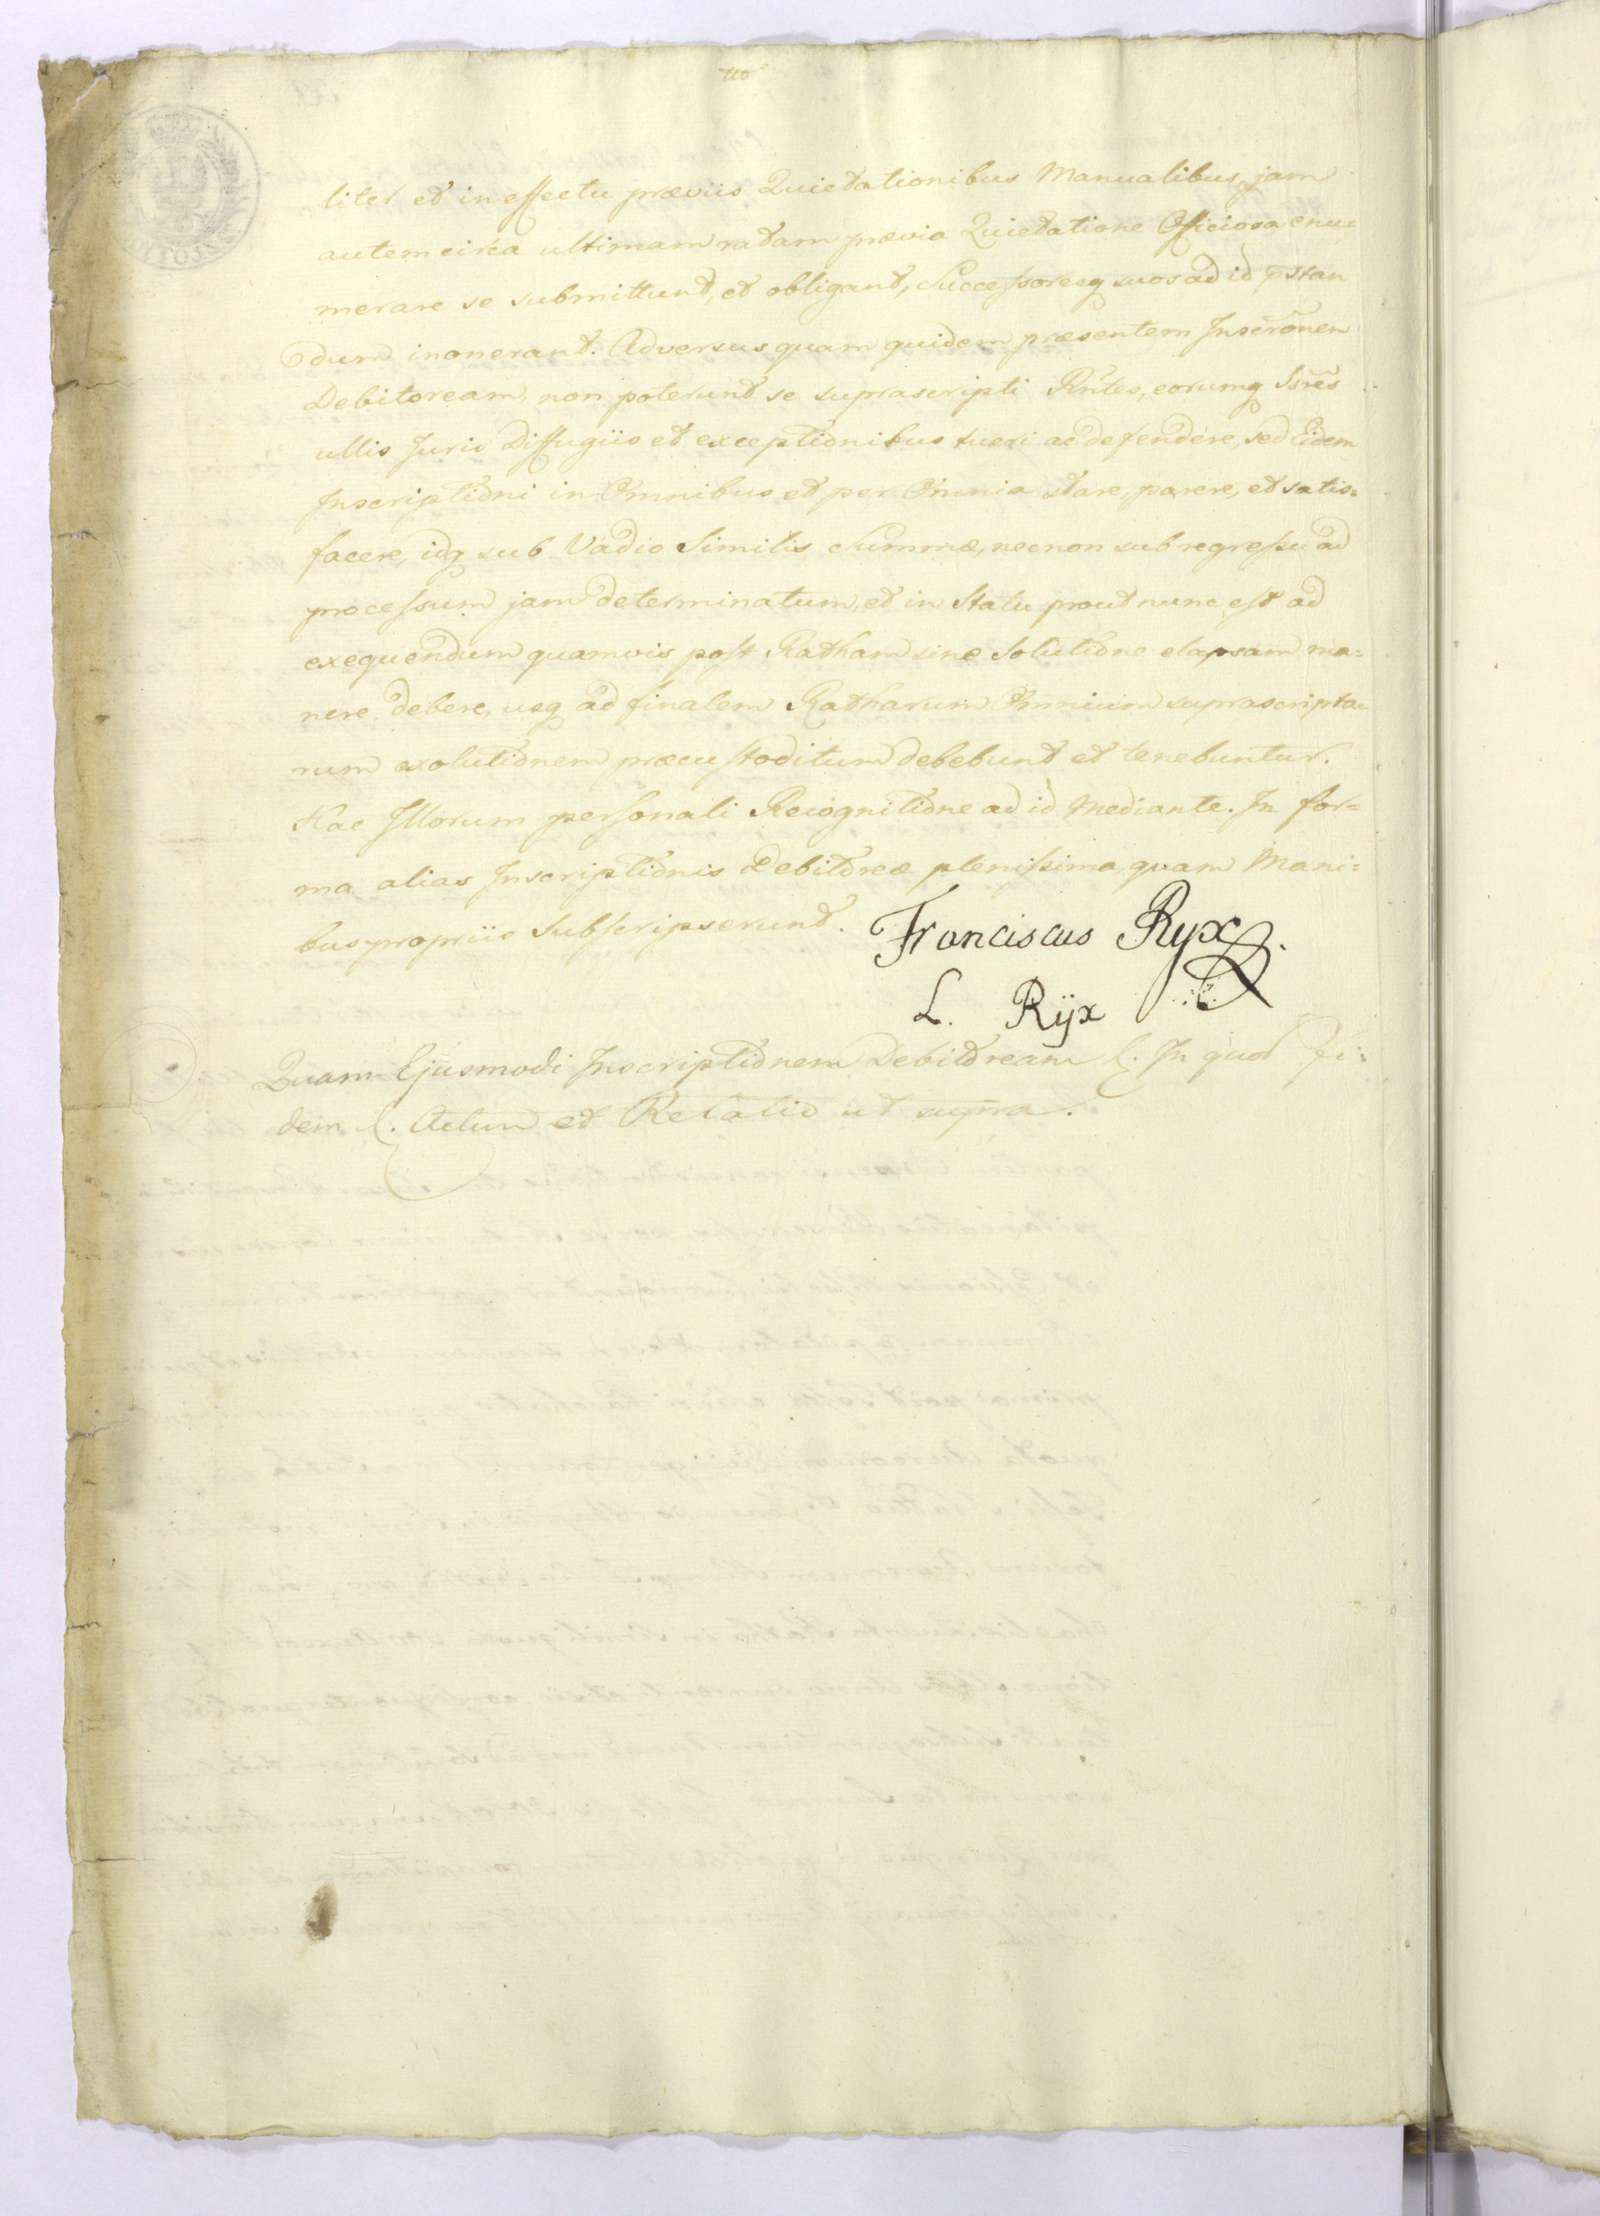 liter et in effectu præviis Quietationibus Manualibus, jam
autem circa ultimam ratam prævia Quietatione Officiosa enu=
merare se submittunt, et obligant, Successoresq suos ad id pstan
dum inonerant. Adversus quam quidem præsentem Inscronen
Debitoream, non poterunt se suprascripti Rntes, eorumq Ssres
ullis Juris Diffugiis et exceptionibus tueri ac defendere, sed Eidem
Inscriptioni in Omnibus et per Omnia stare, parere, et satis=
facere, idq sub Vadio Similis Summæ, necnon sub regressu ad
processum jam determinatum, et in Statu prout nunc est ad
exequendum quamvis post Ratham sine Solutione elapsam ma=
nere debere, usq ad finalem Ratharum Omnium suprascripta=
rum exolutionem præcustoditum debebunt et tenebuntur.
Hac Illorum personali Recognitione ad id Mediante. In for=
ma alias Inscriptionis Debitoreæ plenissima, quam Mani=
bus propriis Subscripserunt.
Franciscus Ryx
L. Ryx
Quam Ejusmodi Inscriptionem Debitoream In quor fi=
dem Actum et Relatio ut supra.